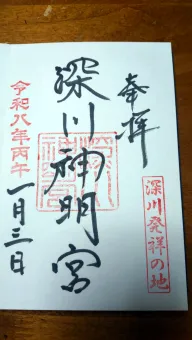 奉拝
深川発祥の地
深川神明宮
令和八年丙午
一月三日